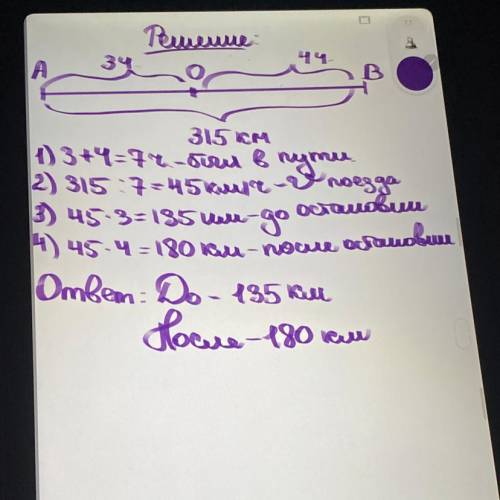 Решение:
A 3ч O 4ч B
315 км
1) 3+4=7ч - был в пути
2) 315:7=45 км/ч - V поезда
3) 45·3=135 км - до остановки
4) 45·4=180 км - после остановки
Ответ: До - 135 км
После - 180 км